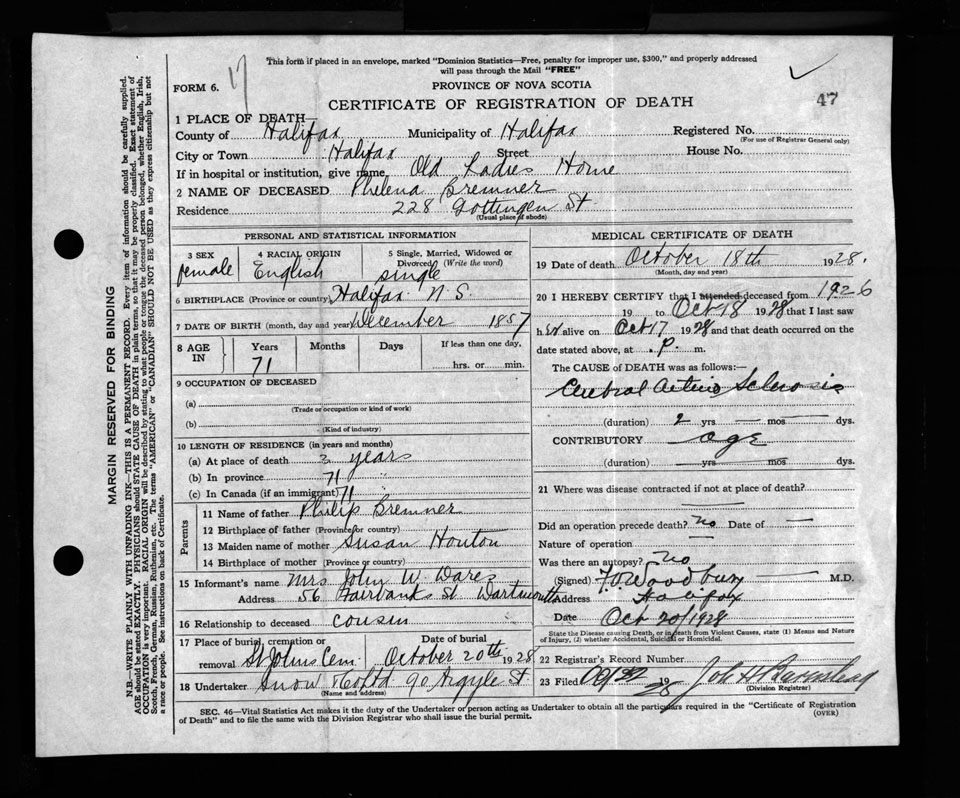 This form if placed in an envelope, marked "Dominion Statistics—Free, penalty for improper use, $300," and properly addressed
will pass through the Mail "FREE"
FORM 6.
PROVINCE OF NOVA SCOTIA
47
CERTIFICATE OF REGISTRATION OF DEATH
1 PLACE OF DEATH
County of Halifax Municipality of Halifax Registered No.
(For use of Registrar General only)
City or Town Halifax Street House No.
If in hospital or institution, give name Old Ladies Home
2 NAME OF DECEASED Phelena Bremner
Residence 228 Gottingen St
(Usual place of abode)
PERSONAL AND STATISTICAL INFORMATION
3 SEX female
4 RACIAL ORIGIN English
5 Single, Married, Widowed or Divorced (Write the word) single
6 BIRTHPLACE (Province or country) Halifax N.S.
7 DATE OF BIRTH (month, day and year) December 1857
8 AGE IN Years 71 Months Days If less than one day, hrs. or min.
9 OCCUPATION OF DECEASED
(a)
(Trade or occupation or kind of work)
(b)
(Kind of industry)
10 LENGTH OF RESIDENCE (in years and months)
(a) At place of death 3 years
(b) In province 71 "
(c) In Canada (if an immigrant) 71
Parents
11 Name of father Philip Bremner
12 Birthplace of father (Province or country)
13 Maiden name of mother Susan Houton
14 Birthplace of mother (Province or country)
15 Informant's name Mrs John W. Dares
Address 56 Fairbanks St. Dartmouth
16 Relationship to deceased cousin
17 Place of burial, cremation or removal St Johns Cem. Date of burial October 20th 1928
18 Undertaker Snow & Co Ltd 90 Argyle St
(Name and address)
MEDICAL CERTIFICATE OF DEATH
19 Date of death October 18th 1928.
(Month, day and year)
20 I HEREBY CERTIFY that I attended deceased from 1926
19 to Oct 18 1928 that I last saw
h er alive on Oct 17 1928 and that death occurred on the
date stated above, at . P. m.
The CAUSE of DEATH was as follows:—
Cerebral Arterio Sclerosis
(duration) 2 yrs — mos — dys.
CONTRIBUTORY age
(duration) — yrs — mos dys.
21 Where was disease contracted if not at place of death?
Did an operation precede death? no Date of —
Nature of operation —
Was there an autopsy? No
(Signed) F.V. Woodbury M.D.
Address Halifax
Date Oct 20/1928
State the Disease causing Death, or in death from Violent Causes, state (1) Means and Nature
of Injury, (2) whether Accidental, Suicidal or Homicidal.
22 Registrar's Record Number
23 Filed 19 28
(Division Registrar)
SEC. 46—Vital Statistics Act makes it the duty of the Undertaker or person acting as Undertaker to obtain all the particulars required in the "Certificate of Registration
of Death" and to file the same with the Division Registrar who shall issue the burial permit.
(OVER)
MARGIN RESERVED FOR BINDING
N.B.—WRITE PLAINLY WITH UNFADING INK—THIS IS A PERMANENT RECORD. Every item of information should be carefully supplied.
AGE should be stated EXACTLY. PHYSICIANS should STATE CAUSE OF DEATH in plain terms, so that it may be properly classified. Exact statement of
OCCUPATION is very important. RACIAL ORIGIN will be described by stating to what people or tongue the deceased person belonged, whether English, Irish,
Scotch, French, German, Russian, Ruthenian, etc. The terms "AMERICAN" or "CANADIAN" SHOULD NOT BE USED as they express citizenship but not
a race or people. See instructions on back of Certificate.